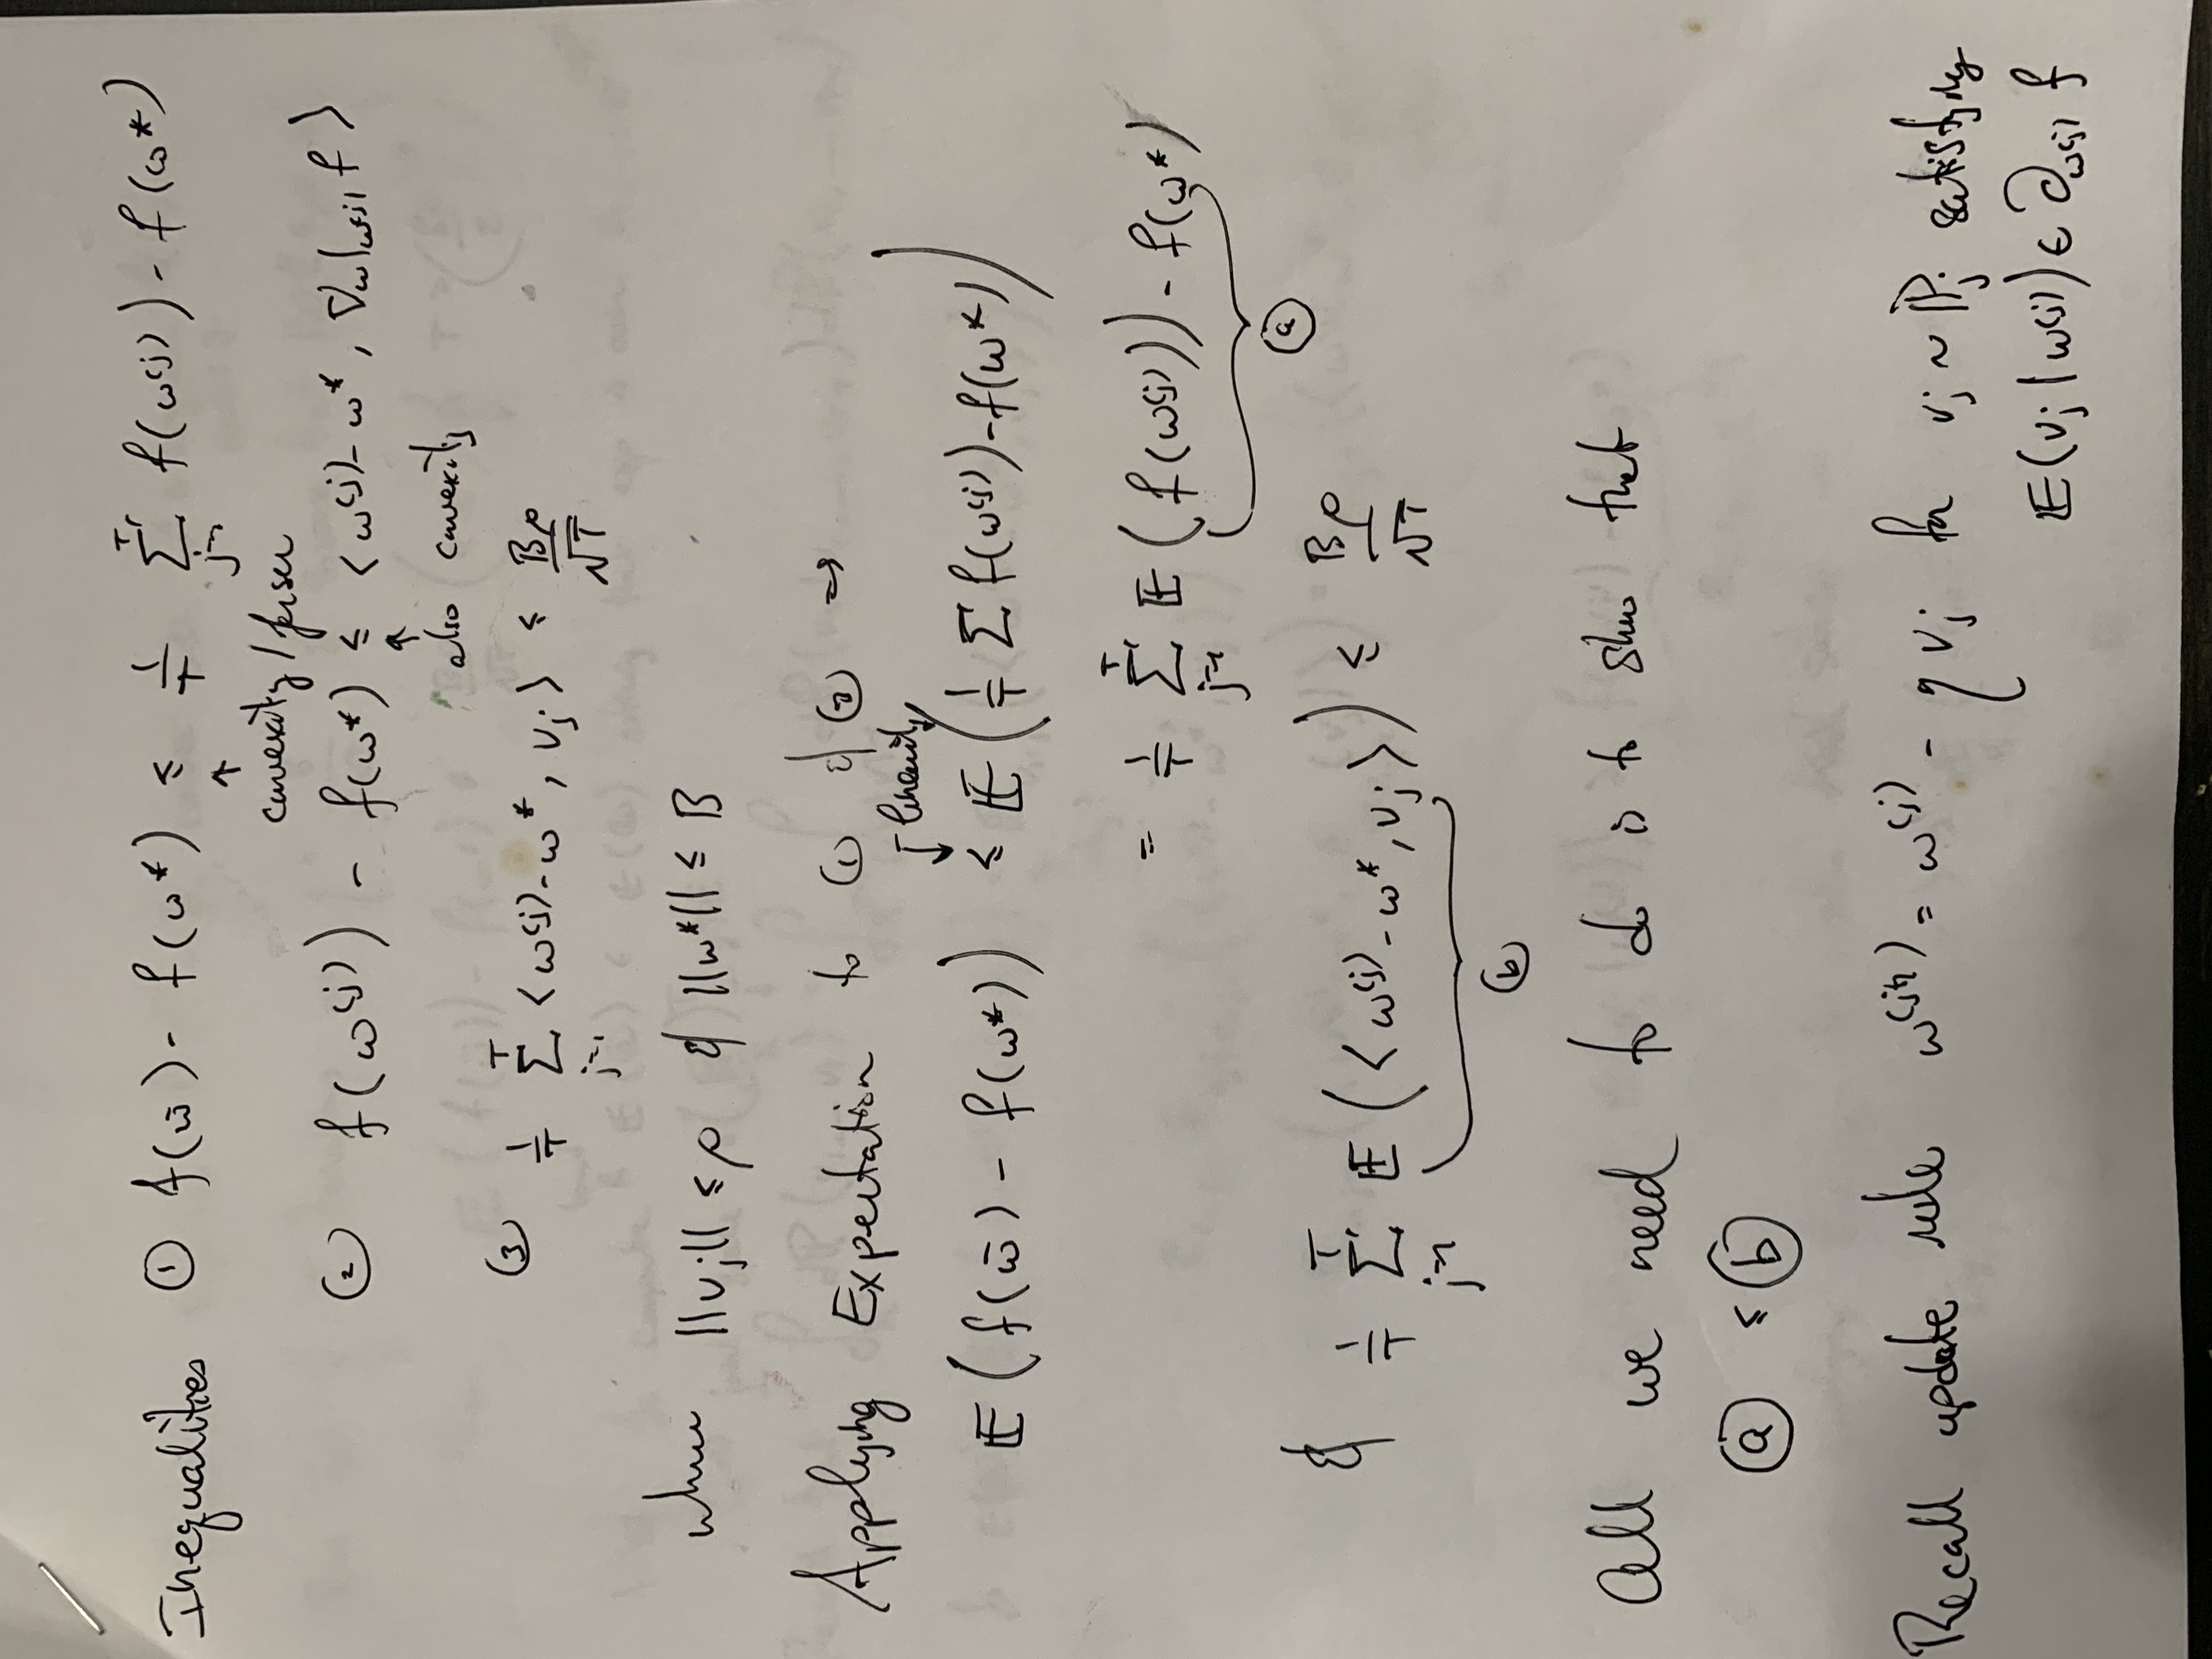 Inequalities ① f(ω̄) - f(ω*) ≤ 1/T Σ_{j=1}^{T} f(ω^(j)) - f(ω*)
↑
convexity / Jensen
② f(ω^(j)) - f(ω*) ≤ ⟨ω^(j) - ω*, ∇_ω|_ω^(j) f⟩
↑
also convexity
③ 1/T Σ_{j=1}^{T} ⟨ω^(j) - ω*, v_j⟩ ≤ Bρ/√T
when ||v_j|| ≤ ρ & ||ω*|| ≤ B
Applying Expectation to ① & ③ ⇒
↓ linearity ↓
𝔼(f(ω̄) - f(ω*)) ≤ 𝔼(1/T Σ f(ω^(j)) - f(ω*))
= 1/T Σ_{j=1}^{T} 𝔼(f(ω^(j))) - f(ω*)
ⓐ
& 1/T Σ_{j=1}^{T} 𝔼(⟨ω^(j) - ω*, v_j⟩) ≤ Bρ/√T
ⓑ
All we need to do is to show that
ⓐ ≤ ⓑ
Recall update rule ω^(j+1) = ω^(j) - η v_j for v_j ~ ℙ_j satisfying
𝔼(v_j | ω^(j)) ∈ ∂_ω^(j) f